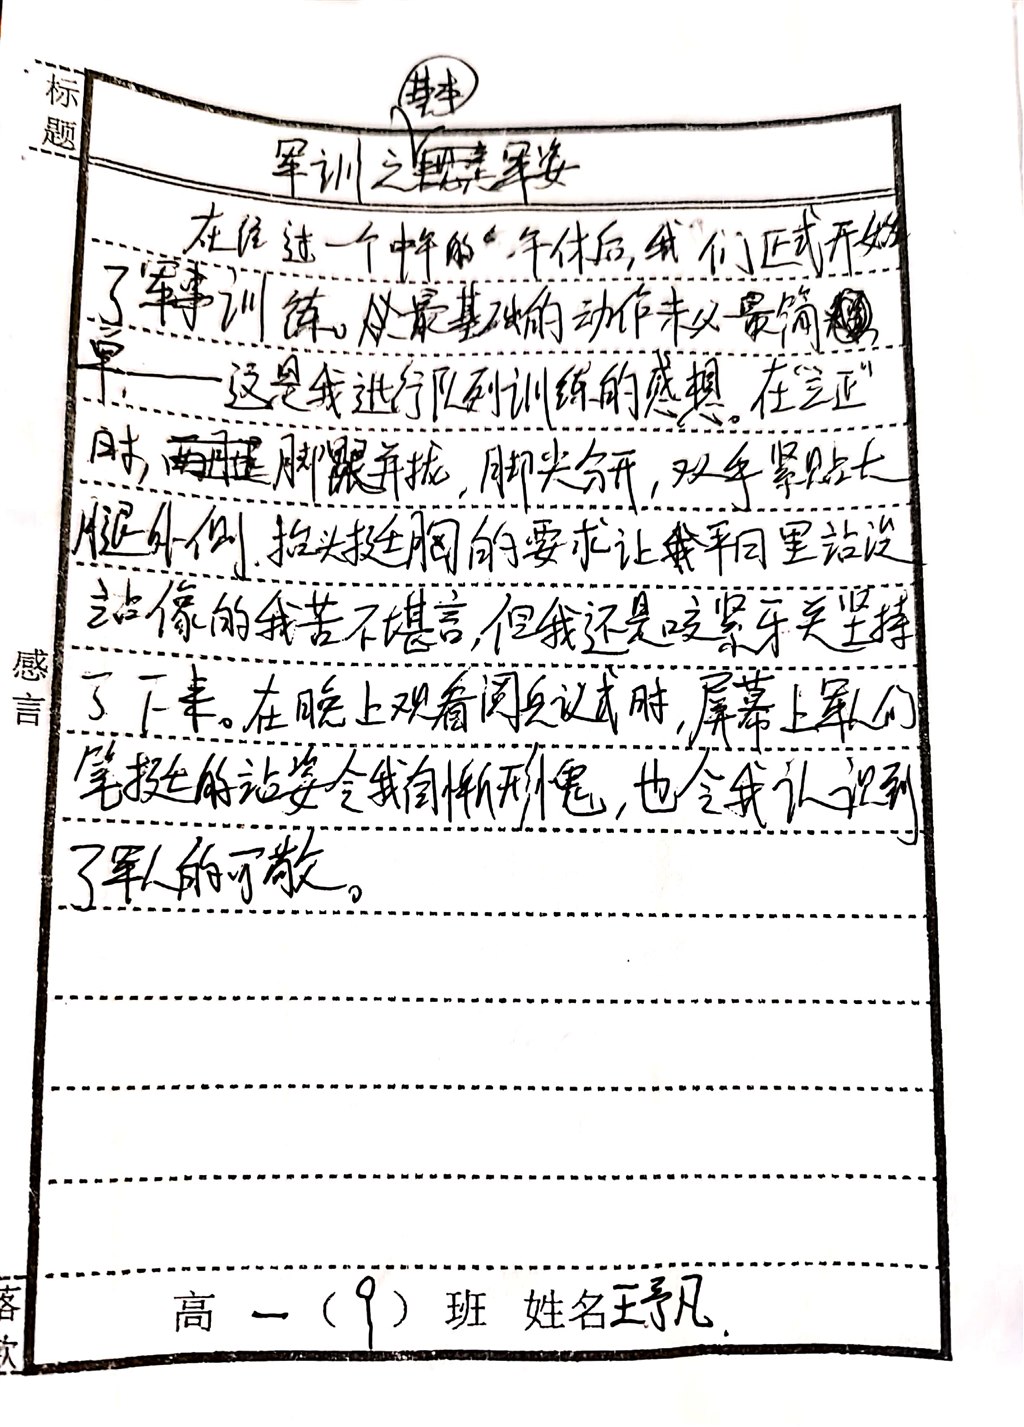 标题
基本
军训之军姿
在经过一个中午的“午休后,我”们正式开始
了军事训练。最基础的动作未必最简
单,——这是我进行队列训练的感想。在“立正”
时,脚跟并拢,脚尖分开,双手紧贴大
腿外侧,抬头挺胸的要求让平日里站没
站像的我苦不堪言,但我还是咬紧牙关坚持
了下来。在晚上观看阅兵议式时,屏幕上军人们
笔挺的站姿令我自惭形愧,也令我认识到
了军人的可敬。
感言
落款
高一(9)班 姓名王予凡.